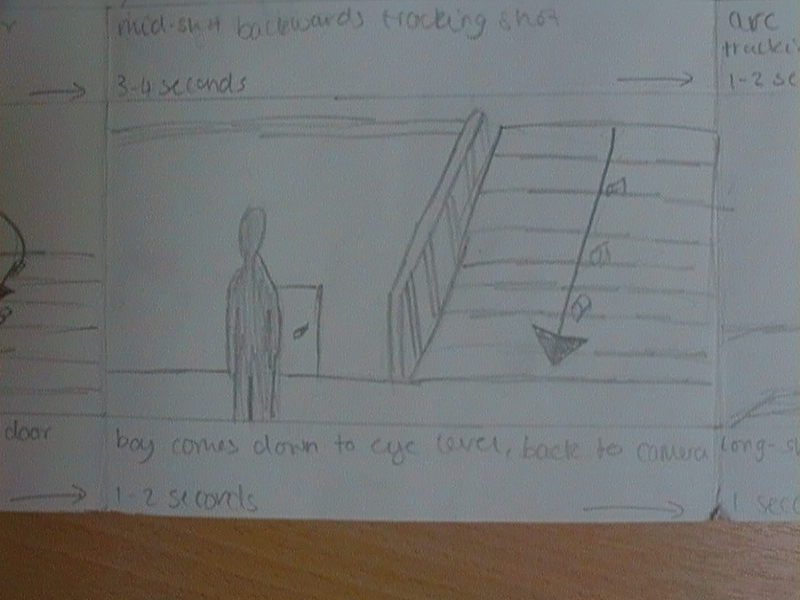 mid-shot backwards tracking shot
3-4 seconds
arc
1-2 sec
door
boy comes down to eye level, back to camera
1-2 seconds
long-s
1 seco